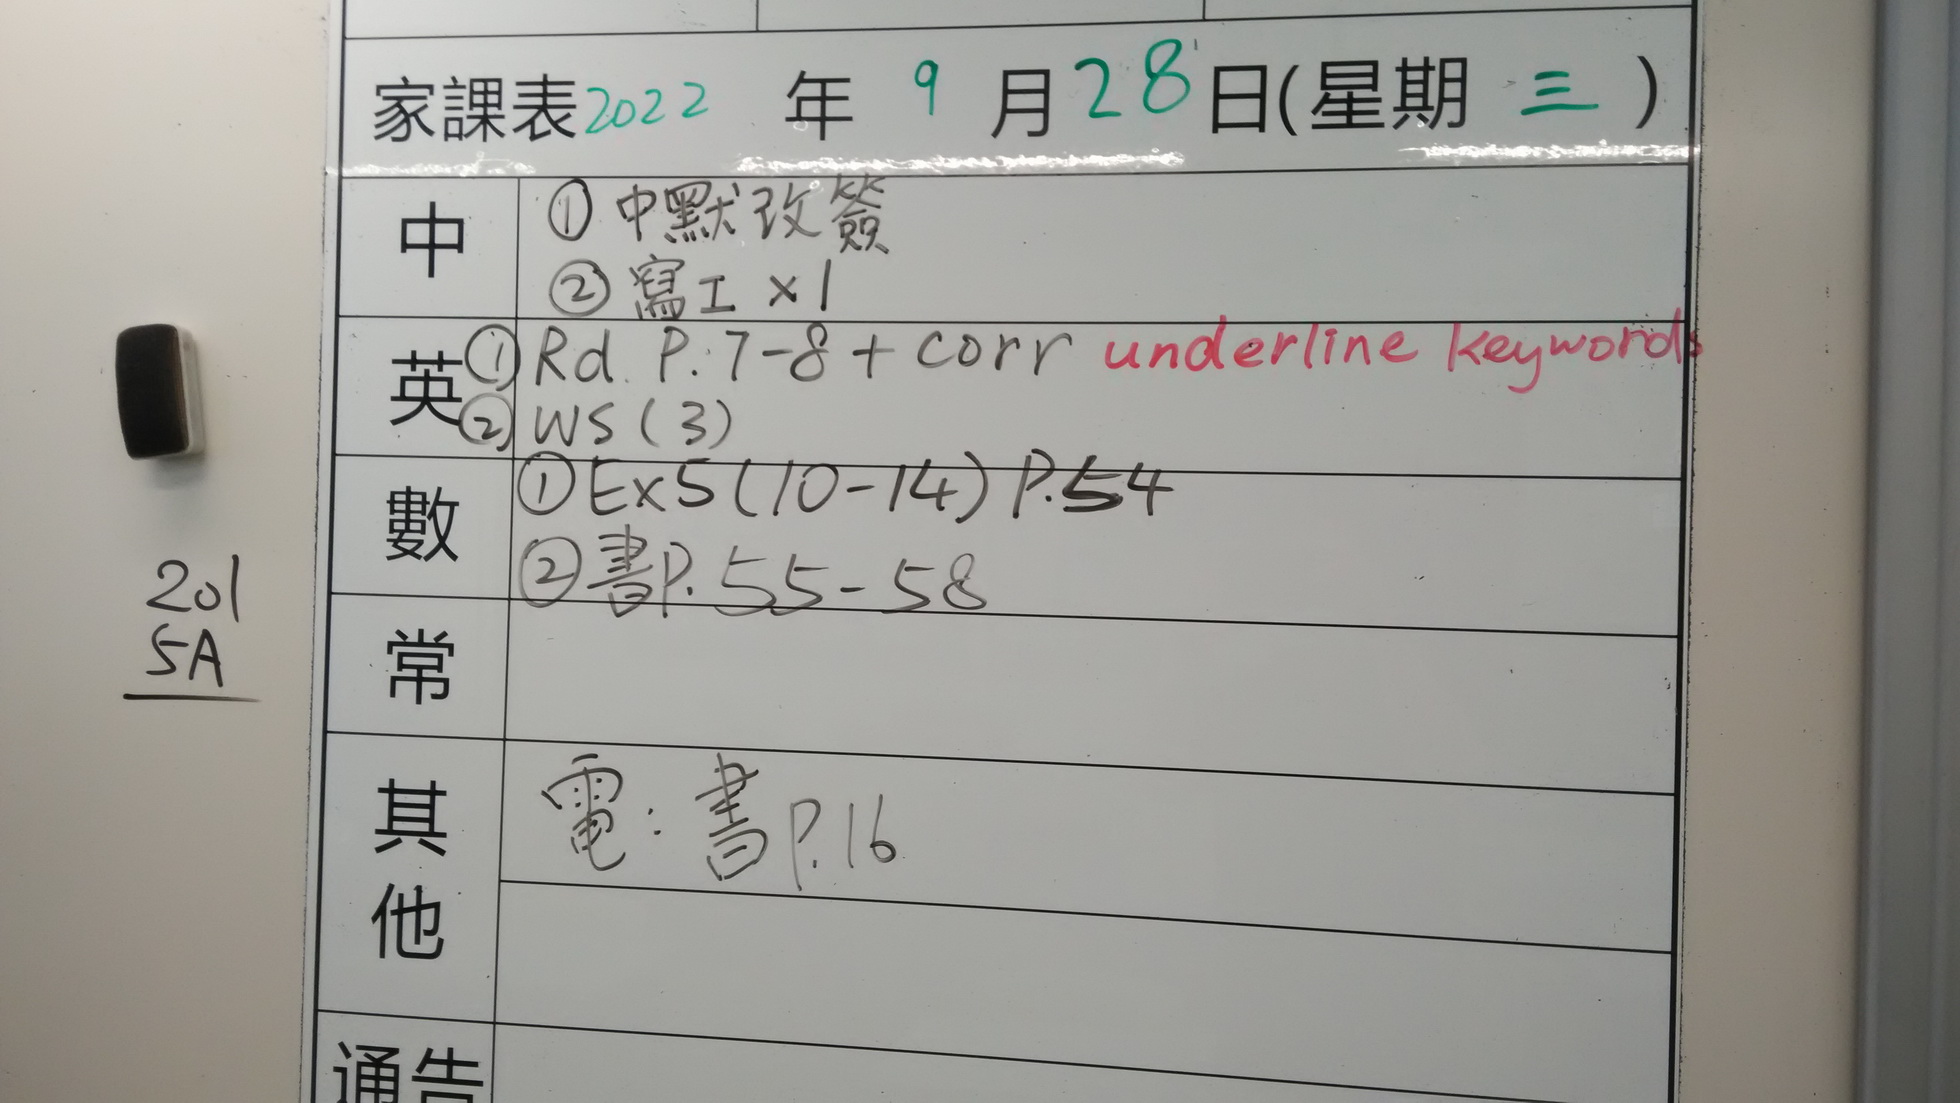 家課表2022 年 9 月 28 日(星期 三 )
中
① 中默改簽
② 寫工 ×1
英
① Rd. P.7-8 + corr underline keywords
② WS (3)
數
① Ex5 (10-14) P.54
② 書P.55-58
常
其他
電：書P.16
通告
201
5A